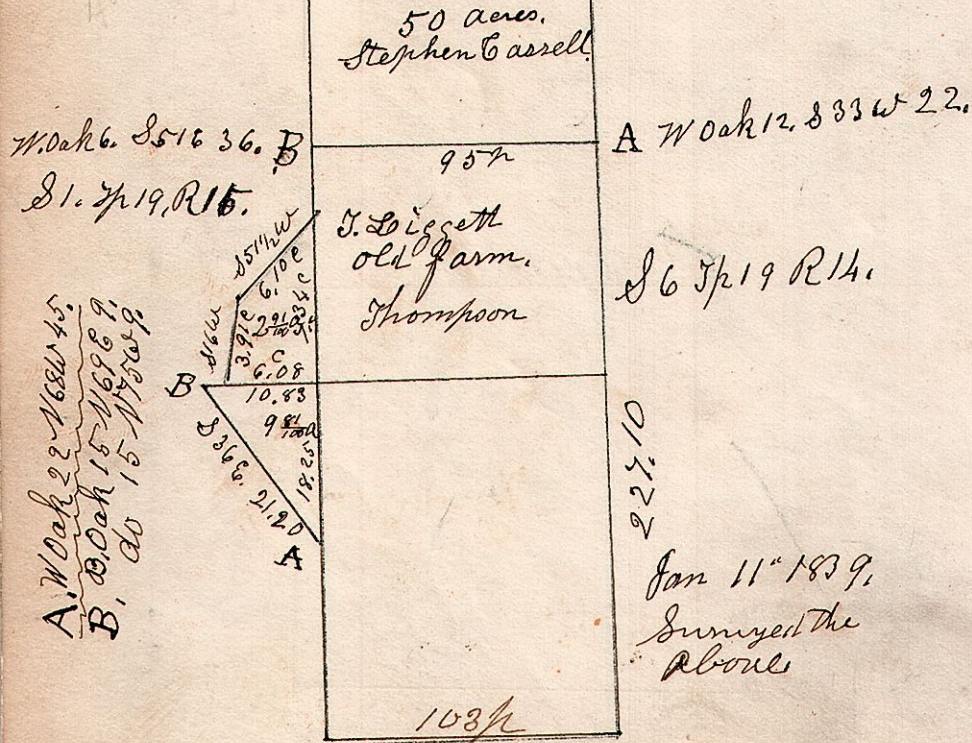 50 acres.
Stephen Cassell
W.Oak 6. S51E 36. B
95p
A W Oak 12. S33W 22.
S1. Tp 19, R15.
T. Liggett
old farm.
Thompson
S 6 Tp 19 R 14.
S51½W
6.10c
S16W
3.91c
2 91/100 a
C
6.08
B
10.83
9 81/100 a
S 39E.
21.20
18.25
A
227.10
A. W Oak 22 N68W 45.
B. B.Oak 15 N69E 9.
do 15 N75W 9.
Jan 11" 1839.
Surveyed the
above
103p